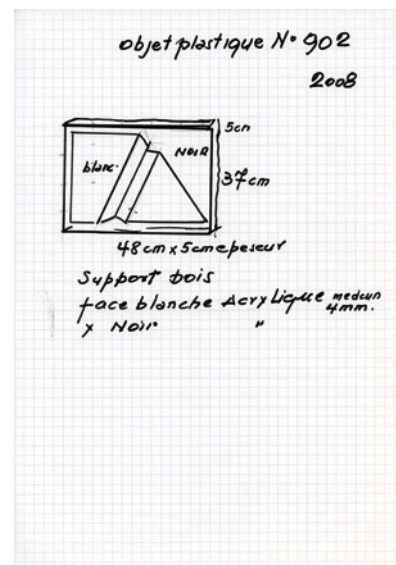 objet plastique N° 902
2008
5cm
blanc
NOIR
37cm
48cm x 5cm epeseur
Support bois
face blanche Acrylique
4mm.
x Noir "